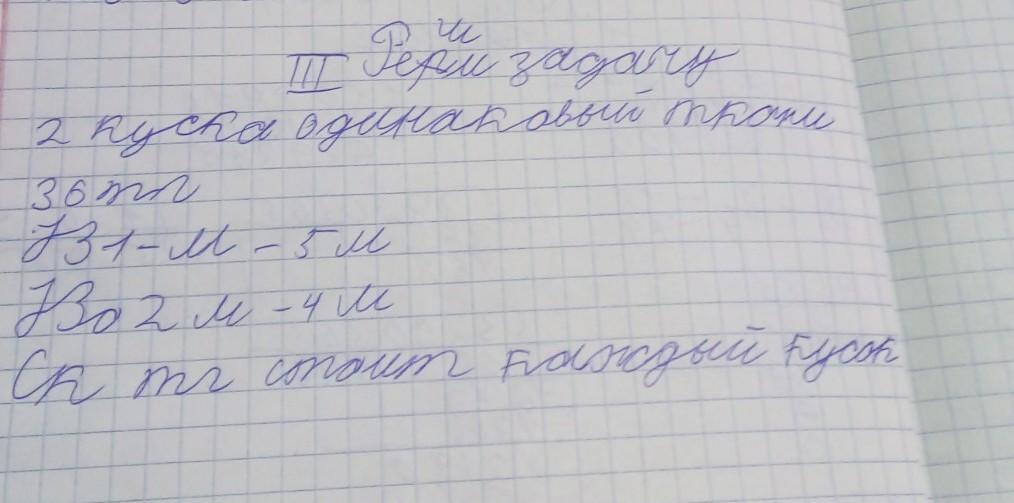 ши
III Реши задачу
2 куска одинаковый ткани
36 тг
В 1-м - 5 м
Во 2 м - 4 м
Ск тг стоит каждый кусок